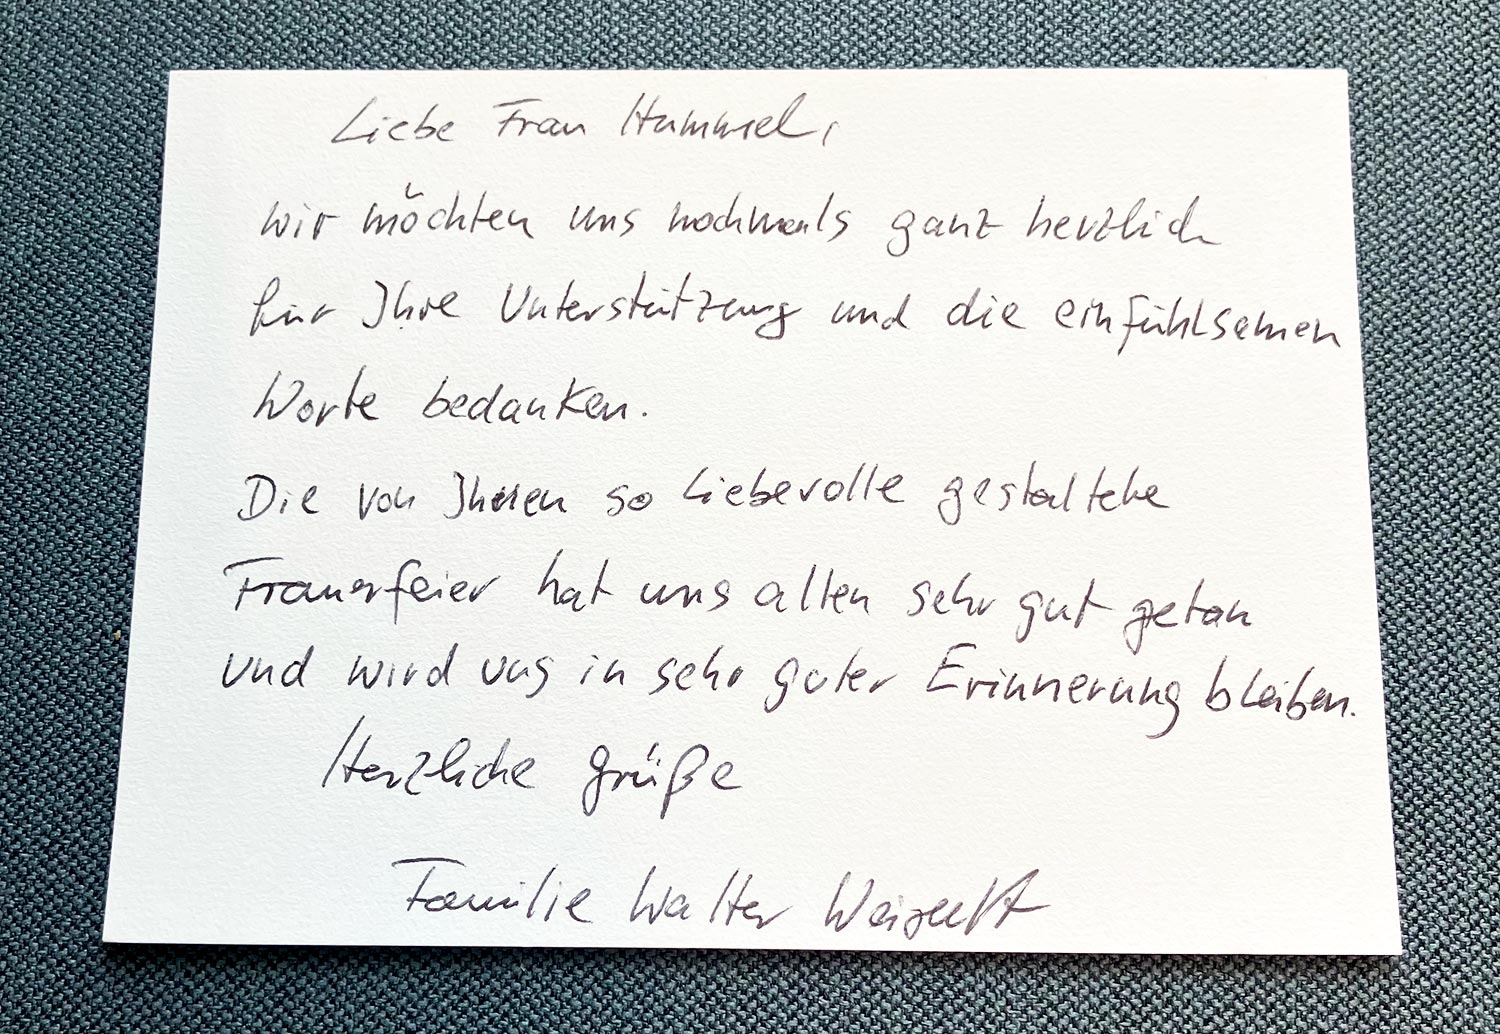 Liebe Frau Hummel,
wir möchten uns nochmals ganz herzlich
für Ihre Unterstützung und die einfühlsamen
Worte bedanken.
Die von Ihnen so liebevolle gestaltete
Trauerfeier hat uns allen sehr gut getan
und wird uns in sehr guter Erinnerung bleiben.
Herzliche Grüße
Familie Walter